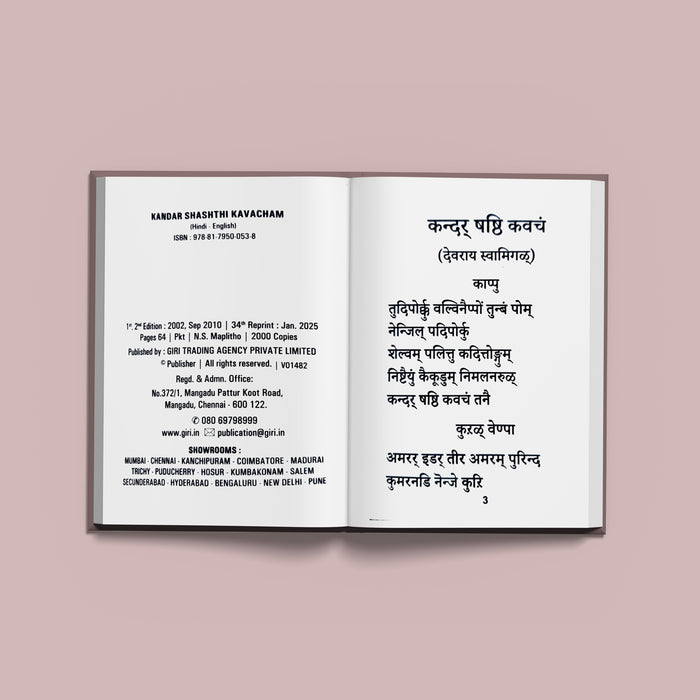 KANDAR SHASHTHI KAVACHAM
(Hindi - English)
ISBN : 978-81-7950-053-8
1st, 2nd Edition : 2002, Sep 2010 | 34th Reprint : Jan. 2025
Pages 64 | Pkt | N.S. Maplitho | 2000 Copies
Published by : GIRI TRADING AGENCY PRIVATE LIMITED
© Publisher | All rights reserved. | V01482
Regd. & Admn. Office:
No.372/1, Mangadu Pattur Koot Road,
Mangadu, Chennai - 600 122.
✆ 080 69798999
www.giri.in ✉ publication@giri.in
SHOWROOMS :
MUMBAI - CHENNAI - KANCHIPURAM - COIMBATORE - MADURAI
TRICHY - PUDUCHERRY - HOSUR - KUMBAKONAM - SALEM
SECUNDERABAD - HYDERABAD - BENGALURU - NEW DELHI - PUNE
कन्दर् षष्ठि कवचं
(देवराय स्वामिगळ्)
काप्पु
तुदिपोर्क्कु वल्विनैप्पों तुन्बं पोम्
नेन्जिल् पदिपोर्कु
शेल्वम् पलित्तु कदित्तोङ्गुम्
निष्टैयुं कैकूडुम् निमलनरुळ्
कन्दर् षष्ठि कवचं तनै
कुऱळ् वेण्पा
अमरर् इडर् तीर अमरम् पुरिन्द
कुमरनडि नॆन्जे कुऱि
3